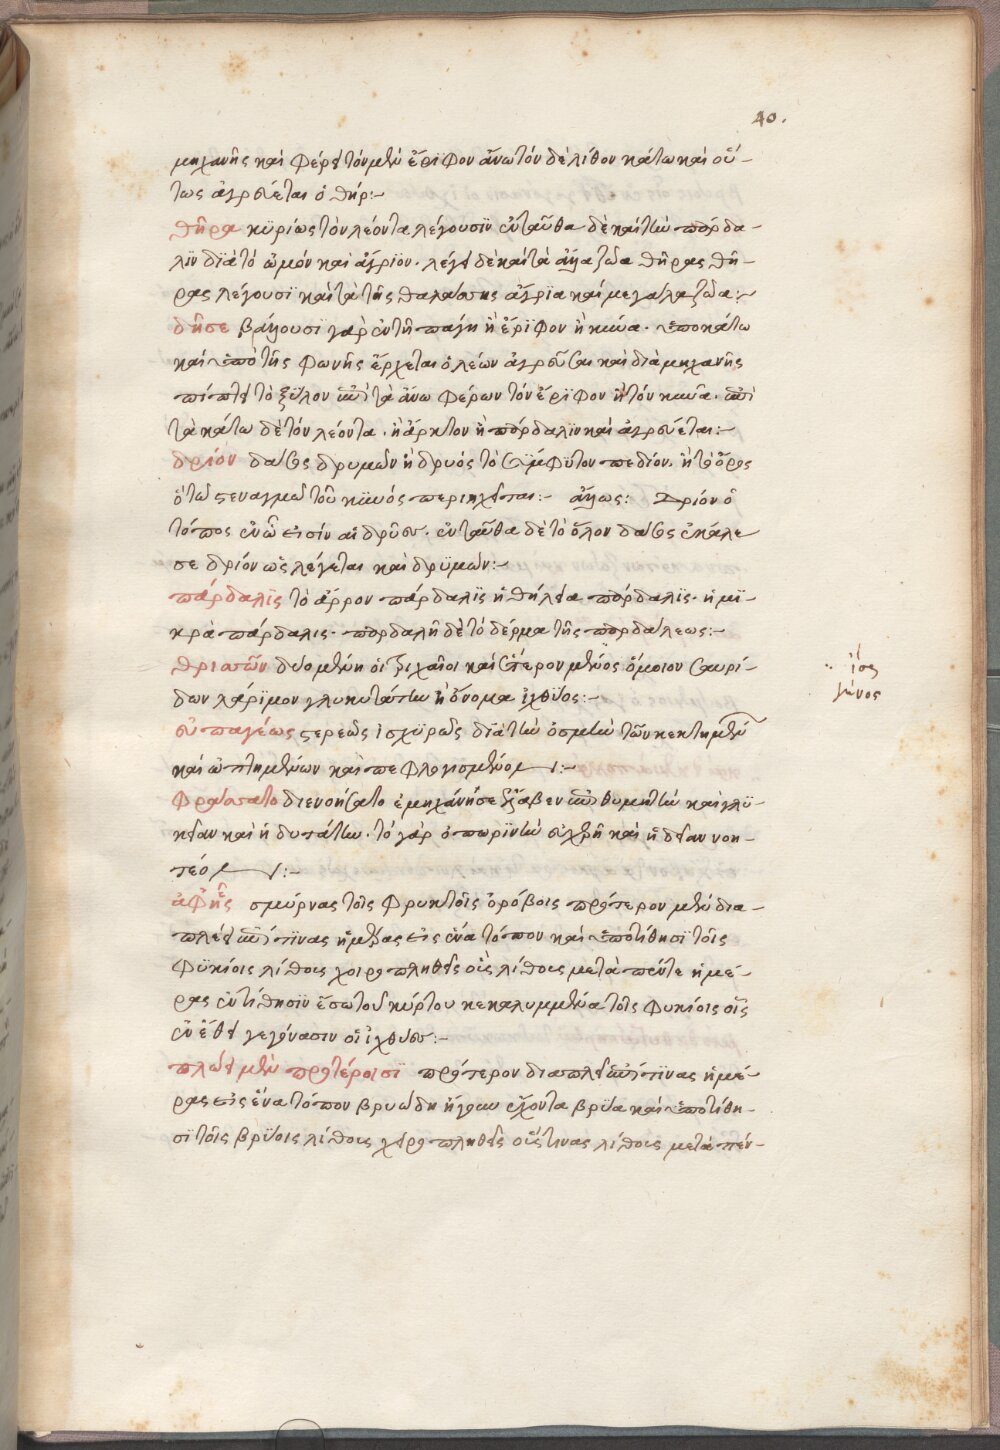 40.
μηχανῆς καὶ φέρει τὸν μὲν ἔριφον ἄνω τὸν δὲ λίθον κάτω καὶ οὕ-
τως ἀγρεύεται ὁ θήρ:-
θῆρα κυρίως τὸν λέοντα λέγουσιν ἐνταῦθα δὲ καὶ τὴν πόρδα-
λιν διὰ τὸ ὠμὸν καὶ ἄγριον. λέγει δὲ καὶ τὰ ἄλλα ζῶα θῆρας θῆ-
ρας λέγουσι καὶ τὰ τῆς θαλάσσης ἄγρια καὶ μεγάλα ζῶα:-
δῆσε βάλλουσι γὰρ ἐν τῇ πάγῃ ἢ ἔριφον ἢ κύνα. ὑποκάτω
καὶ ὑπὸ τῆς φωνῆς ἔρχεται ὁ λέων ἀγρεῦσαι καὶ διὰ μηχανῆς
πίπτει τὸ ξύλον ἐπὶ τὰ ἄνω φέρων τὸν ἔριφον ἢ τὸν κύνα. ἐπὶ
τὰ κάτω δὲ τὸν λέοντα. ἢ ἄρκτον ἢ πόρδαλιν καὶ ἀγρεύεται:-
δρίον δάσος δρυμὼν ἢ δρυὸς τὸ σύμφυτον πεδίον. ἢ τὸ ὄρος
ὅτω στεναγμῶ τοῦ κυνὸς περιηχεῖται:- ἄλλως: Δρίον ὁ
τόπος ἐν ὧ εἰσὶν αἱ δρῦες. ἐνταῦθα δὲ τὸ ὅλον δάσος ἐκάλε
σε δρίον ὡς λέγεται καὶ δρυμών:-
πάρδαλις τὸ ἄρρον πάρδαλις ἡ θήλεια πόρδαλις. ἡ μι-
κρὰ πάρδαλις. πορδαλῆ δὲ τὸ δέρμα τῆς πορδάλεως:-
θρισσῶν δεύομένη οἱ τριχαῖοι καὶ ἕτερον μένος ὅμοιον σαυρί-
δων λάριμον γλυκυτάτην ἢ ὄνομα ἰχθύος:-
ἴσως
γένος
εὐπαγέως στερεῶς ἰσχυρῶς διὰ τὴν ὀσμὴν τῶν κεκτημένων
καὶ ὠπτημένων καὶ πεφλογισμένον:-
φράσσατο διενοήσατο ἐμηχάνησε ἔλαβεν ἐπιθυμητὴν καὶ γλυ-
κεῖαν καὶ ἡδυτάτην. τὸ γὰρ ὀπωρινὴν εὐχρῆ καὶ ἡδεῖαν νοη-
τέον:-
ἀφῆης σμύρνας τοῖς φρυκτοῖς ὀρόβοις πρότερον μὲν δια-
πλέει ἐπί τινας ἡμέρας εἰς ἕνα τόπον καὶ ὑποτίθησι τοῖς
φυκίοις λίθους χοιροπληθεῖς οὓς λίθους μετὰ πέντε ἡμέ-
ρας ἐντίθησιν ἔσω τοῦ κύρτου κεκαλυμμένα τοῖς φυκίοις οἷς
ἐν ἔθει γεγόνασιν οἱ ἰχθύες:-
πλώει μὲν προτέροισι πρότερον διαπλεῖ ἐπί τινας ἡμέ-
ρας εἰς ἕνα τόπον βρυώδη ἤγουν ἔχοντα βρύα καὶ ὑποτίθη-
σι τοῖς βρύοις λίθους χειροπληθεῖς οὕς τινας λίθους μετὰ πέν-